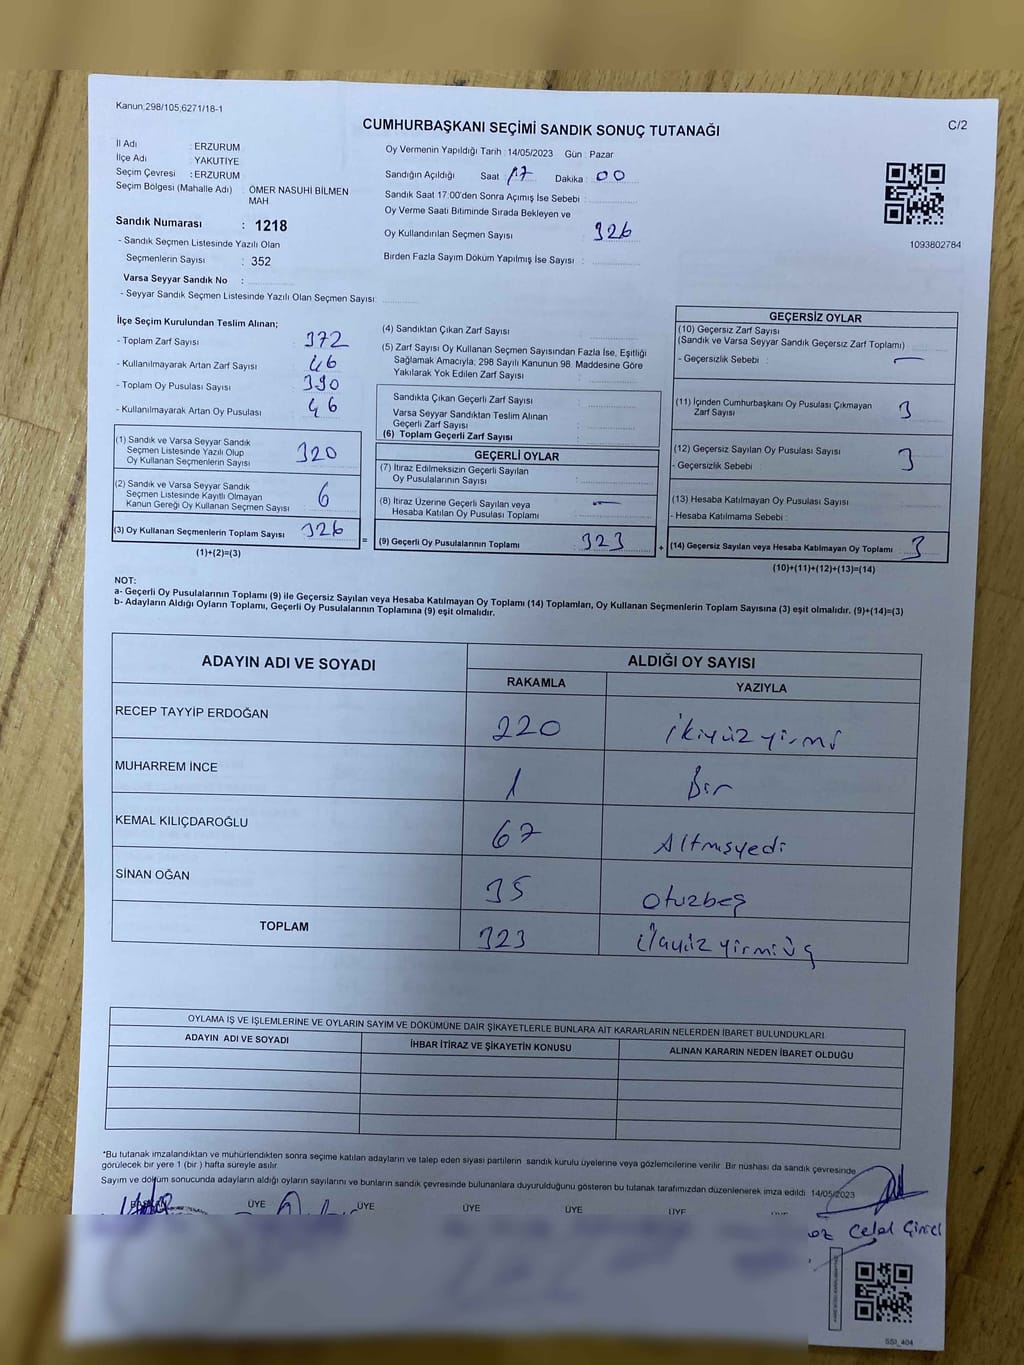 Kanun;298/105;6271/18-1
CUMHURBAŞKANI SEÇİMİ SANDIK SONUÇ TUTANAĞI
C/2
İl Adı : ERZURUM
İlçe Adı : YAKUTİYE
Seçim Çevresi : ERZURUM
Seçim Bölgesi (Mahalle Adı) : ÖMER NASUHİ BİLMEN
MAH
Sandık Numarası : 1218
- Sandık Seçmen Listesinde Yazılı Olan
Seçmenlerin Sayısı : 352
Varsa Seyyar Sandık No :
- Seyyar Sandık Seçmen Listesinde Yazılı Olan Seçmen Sayısı:
Oy Vermenin Yapıldığı Tarih : 14/05/2023 Gün : Pazar
Sandığın Açıldığı Saat : 17 Dakika : 00
Sandık Saat 17:00'den Sonra Açımış İse Sebebi :
Oy Verme Saati Bitiminde Sırada Bekleyen ve
Oy Kullandırılan Seçmen Sayısı : 326
Birden Fazla Sayım Döküm Yapılmış İse Sayısı :
1093802784
İlçe Seçim Kurulundan Teslim Alınan;
- Toplam Zarf Sayısı : 372
- Kullanılmayarak Artan Zarf Sayısı : 46
- Toplam Oy Pusulası Sayısı : 390
- Kullanılmayarak Artan Oy Pusulası : 46
(1) Sandık ve Varsa Seyyar Sandık
Seçmen Listesinde Yazılı Olup
Oy Kullanan Seçmenlerin Sayısı : 320
(2) Sandık ve Varsa Seyyar Sandık
Seçmen Listesinde Kayıtlı Olmayan
Kanun Gereği Oy Kullanan Seçmen Sayısı : 6
(3) Oy Kullanan Seçmenlerin Toplam Sayısı : 326
(1)+(2)=(3)
=
(4) Sandıktan Çıkan Zarf Sayısı :
(5) Zarf Sayısı Oy Kullanan Seçmen Sayısından Fazla İse, Eşitliği
Sağlamak Amacıyla, 298 Sayılı Kanunun 98. Maddesine Göre
Yakılarak Yok Edilen Zarf Sayısı :
Sandıkta Çıkan Geçerli Zarf Sayısı :
Varsa Seyyar Sandıktan Teslim Alınan
Geçerli Zarf Sayısı :
(6) Toplam Geçerli Zarf Sayısı :
GEÇERLİ OYLAR
(7) İtiraz Edilmeksizin Geçerli Sayılan
Oy Pusulalarının Sayısı :
(8) İtiraz Üzerine Geçerli Sayılan veya
Hesaba Katılan Oy Pusulası Toplamı : —
(9) Geçerli Oy Pusulalarının Toplamı : 323
+
GEÇERSİZ OYLAR
(10) Geçersiz Zarf Sayısı
(Sandık ve Varsa Seyyar Sandık Geçersiz Zarf Toplamı) :
- Geçersizlik Sebebi : —
(11) İçinden Cumhurbaşkanı Oy Pusulası Çıkmayan
Zarf Sayısı : 3
(12) Geçersiz Sayılan Oy Pusulası Sayısı : 3
- Geçersizlik Sebebi :
(13) Hesaba Katılmayan Oy Pusulası Sayısı :
- Hesaba Katılmama Sebebi :
(14) Geçersiz Sayılan veya Hesaba Katılmayan Oy Toplamı : 3
(10)+(11)+(12)+(13)=(14)
NOT:
a- Geçerli Oy Pusulalarının Toplamı (9) ile Geçersiz Sayılan veya Hesaba Katılmayan Oy Toplamı (14) Toplamları, Oy Kullanan Seçmenlerin Toplam Sayısına (3) eşit olmalıdır. (9)+(14)=(3)
b- Adayların Aldığı Oyların Toplamı, Geçerli Oy Pusulalarının Toplamına (9) eşit olmalıdır.
ADAYIN ADI VE SOYADI
ALDIĞI OY SAYISI
RAKAMLA YAZIYLA
RECEP TAYYİP ERDOĞAN 220 ikiyüz yirmi
MUHARREM İNCE 1 Bir
KEMAL KILIÇDAROĞLU 67 Altmışyedi
SİNAN OĞAN 35 otuzbeş
TOPLAM 323 üçyüz yirmi üç
OYLAMA İŞ VE İŞLEMLERİNE VE OYLARIN SAYIM VE DÖKÜMÜNE DAİR ŞİKAYETLERLE BUNLARA AİT KARARLARIN NELERDEN İBARET BULUNDUKLARI
ADAYIN ADI VE SOYADI İHBAR İTİRAZ VE ŞİKAYETİN KONUSU ALINAN KARARIN NEDEN İBARET OLDUĞU
*Bu tutanak imzalandıktan ve mühürlendikten sonra seçime katılan adayların ve talep eden siyasi partilerin sandık kurulu üyelerine veya gözlemcilerine verilir. Bir nüshası da sandık çevresinde
görülecek bir yere 1 (bir ) hafta süreyle asılır.
Sayım ve döküm sonucunda adayların aldığı oyların sayılarını ve bunların sandık çevresinde bulunanlara duyurulduğunu gösteren bu tutanak tarafımızdan düzenlenerek imza edildi. 14/05/2023
BAŞKAN ÜYE ÜYE ÜYE ÜYE ÜYE
Celal
SSI_404